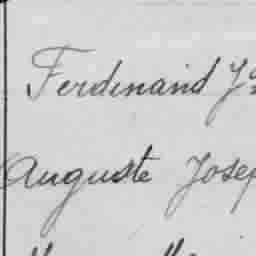 Ferdinand
Auguste Josep